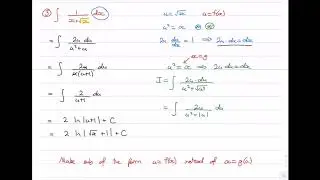 ③ ∫ 1/(x+√x) dx
= ∫ 2u du/(u²+u)
= ∫ 2u/(u(u+1)) du
= ∫ 2/(u+1) du
= 2 ln|u+1| + C
= 2 ln|√x + 1| + C
u=√x u=f(x)
u² = x
2u du/dx = 1 ⇒ 2u du = dx
x=g
u² = x ⇒ 2u du = dx
I = ∫ 2u du/(u²+√u²)
= ∫ 2u/(u²+|u|) du
Make sub of the form u=f(x) instead of x=g(u)